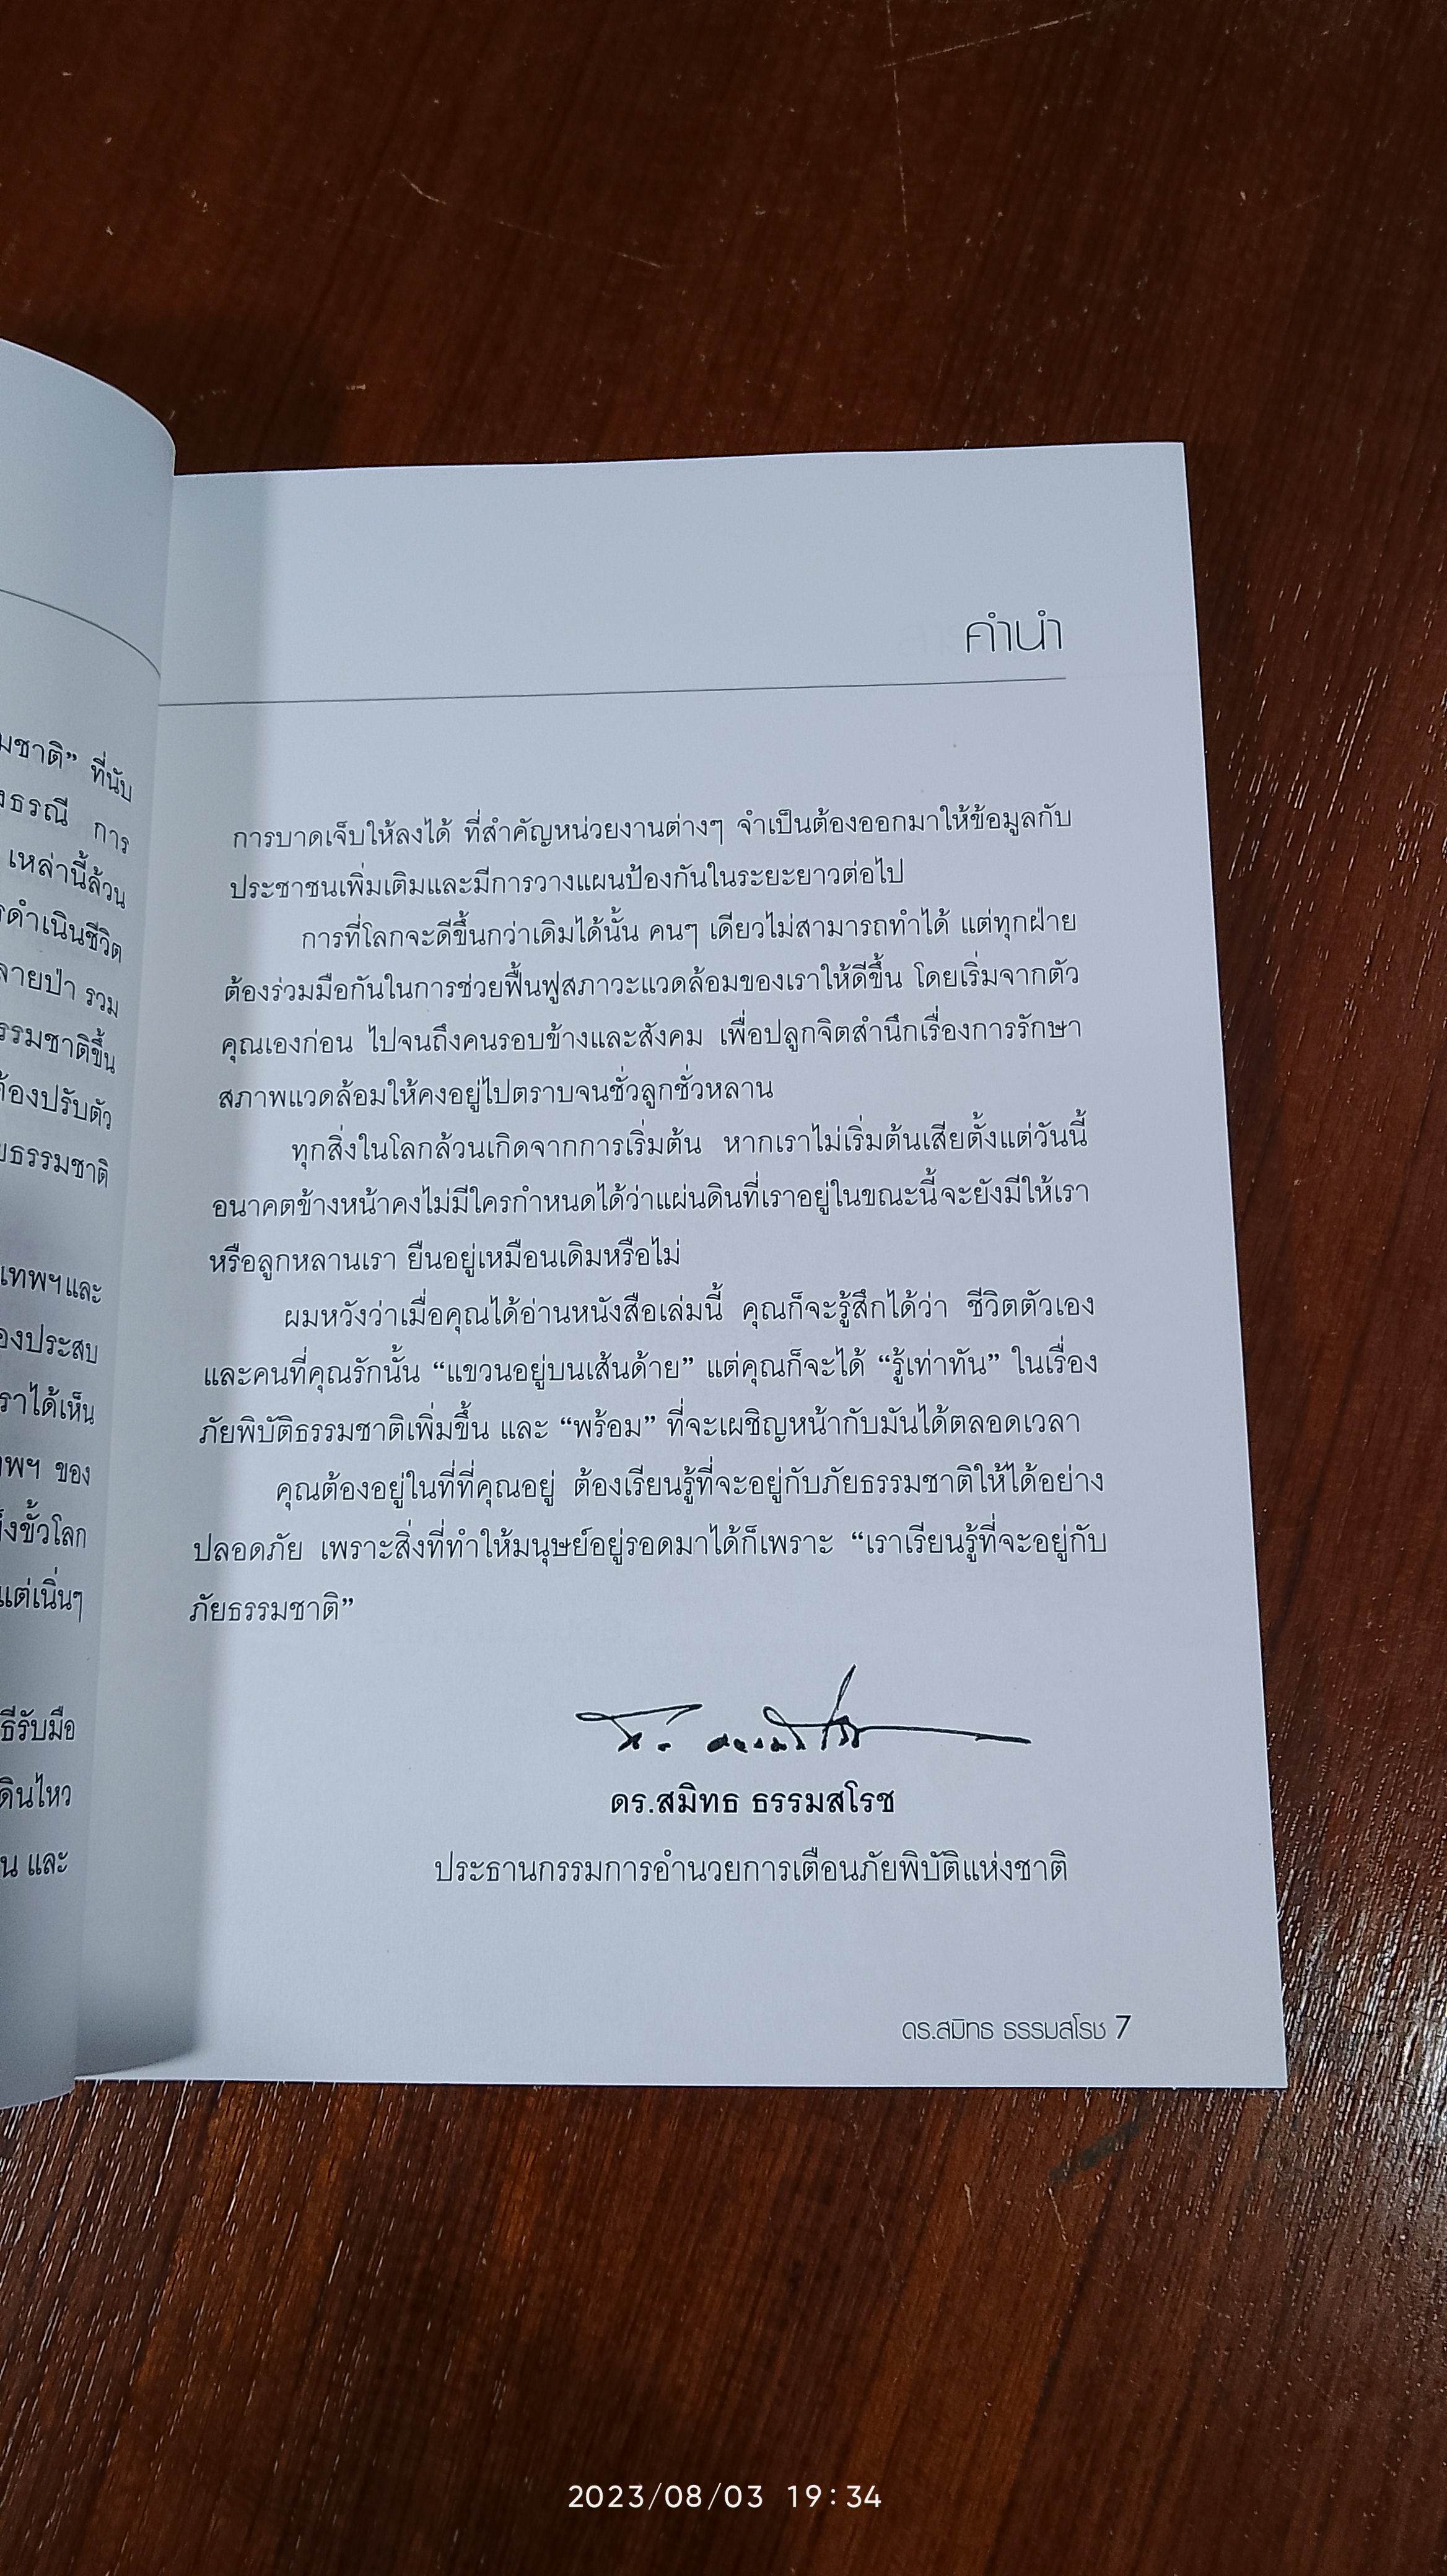 มชาติ” ที่นับ
งธรณี การ
เหล่านี้ล้วน
รดำเนินชีวิต
ลายป่า รวม
รรมชาติขึ้น
ต้องปรับตัว
ยธรรมชาติ
เทพฯและ
องประสบ
ราได้เห็น
ทพฯ ของ
แต่เนิ่นๆ
ธีรับมือ
ดินไหว
น และ
คำนำ
การบาดเจ็บให้ลงได้ ที่สำคัญหน่วยงานต่างๆ จำเป็นต้องออกมาให้ข้อมูลกับ
ประชาชนเพิ่มเติมและมีการวางแผนป้องกันในระยะยาวต่อไป
การที่โลกจะดีขึ้นกว่าเดิมได้นั้น คนๆ เดียวไม่สามารถทำได้ แต่ทุกฝ่าย
ต้องร่วมมือกันในการช่วยฟื้นฟูสภาวะแวดล้อมของเราให้ดีขึ้น โดยเริ่มจากตัว
คุณเองก่อน ไปจนถึงคนรอบข้างและสังคม เพื่อปลูกจิตสำนึกเรื่องการรักษา
สภาพแวดล้อมให้คงอยู่ไปตราบจนชั่วลูกชั่วหลาน
ทุกสิ่งในโลกล้วนเกิดจากการเริ่มต้น หากเราไม่เริ่มต้นเสียตั้งแต่วันนี้
อนาคตข้างหน้าคงไม่มีใครกำหนดได้ว่าแผ่นดินที่เราอยู่ในขณะนี้จะยังมีให้เรา
หรือลูกหลานเรา ยืนอยู่เหมือนเดิมหรือไม่
ผมหวังว่าเมื่อคุณได้อ่านหนังสือเล่มนี้ คุณก็จะรู้สึกได้ว่า ชีวิตตัวเอง
และคนที่คุณรักนั้น “แขวนอยู่บนเส้นด้าย” แต่คุณก็จะได้ “รู้เท่าทัน” ในเรื่อง
ภัยพิบัติธรรมชาติเพิ่มขึ้น และ “พร้อม” ที่จะเผชิญหน้ากับมันได้ตลอดเวลา
คุณต้องอยู่ในที่ที่คุณอยู่ ต้องเรียนรู้ที่จะอยู่กับภัยธรรมชาติให้ได้อย่าง
ปลอดภัย เพราะสิ่งที่ทำให้มนุษย์อยู่รอดมาได้ก็เพราะ “เราเรียนรู้ที่จะอยู่กับ
ภัยธรรมชาติ”
ดร.สมิทธ ธรรมสโรช
ประธานกรรมการอำนวยการเตือนภัยพิบัติแห่งชาติ
ดร.สมิทธ ธรรมสโรช 7
2023/08/03 19:34